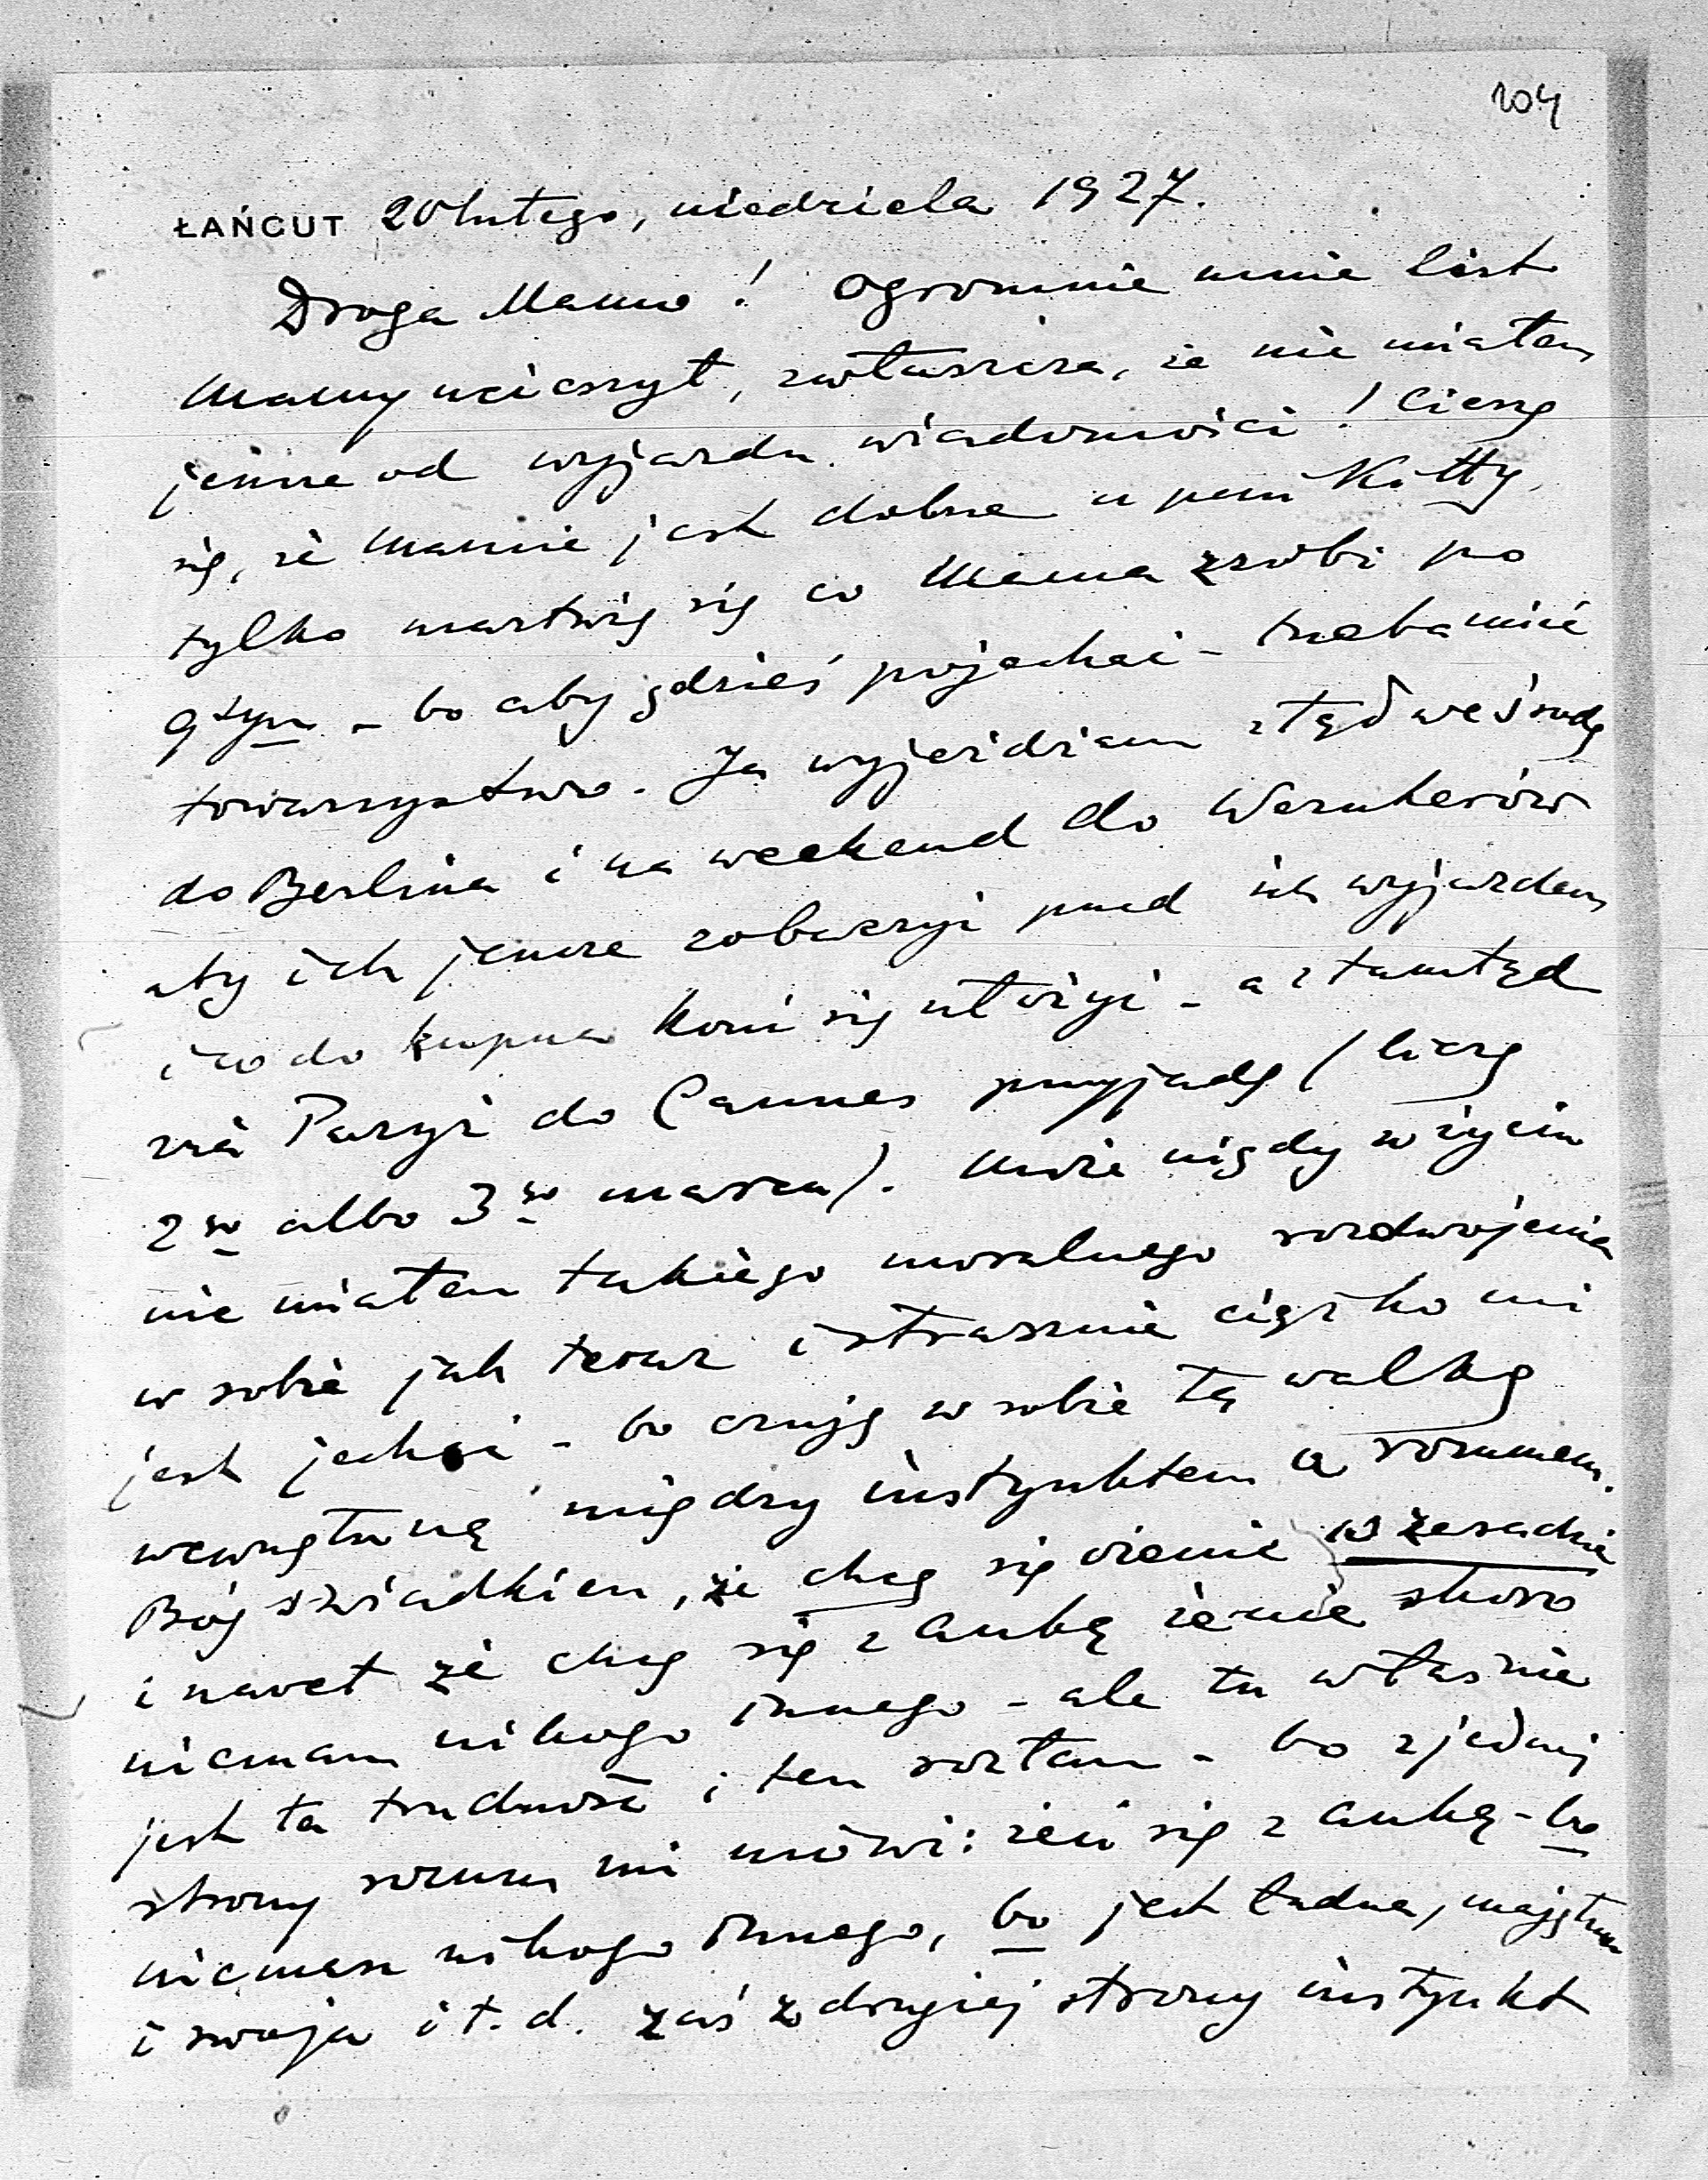 104
ŁAŃCUT 20 lutego, niedziela 1927.
Droga Mamo! Ogromnie mnie list
Mamy ucieszył, zwłaszcza, że nie miałem
jeszcze od wyjazdu wiadomości! Cieszę
się, że Mamie jest dobrze u pani Kitty,
tylko martwię się co Mama zrobi po
9tym - bo aby gdzieś pojechać - trzeba mieć
towarzystwo. Ja wyjeżdżam ztąd we środę
do Berlina i na weekend do Wernherów
aby ich jeszcze zobaczyć przed ich wyjazdem
i co do kupna koni się ułożyć - a ztamtąd
via Paryż do Cannes przyjadę (liczę
2go albo 3go marca). Może nigdy w życiu
nie miałem takiego moralnego rozdwojenia
w sobie jak teraz i strasznie ciężko mi
jest jechać - bo czuję w sobie tą walkę
wewnętrzną między instynktem a rozumem.
Bóg świadkiem, że chcę się żenić w zasadzie
i nawet że chcę się z Anką żenić skoro
niemam nikogo innego - ale tu właśnie
jest ta trudność i ten rozłam - bo z jednej
strony rozum mi mówi: żeń się z Anką - bo
niemasz nikogo innego, bo jest ładna, majętna
i swoja i t. d. zaś z drugiej strony instynkt